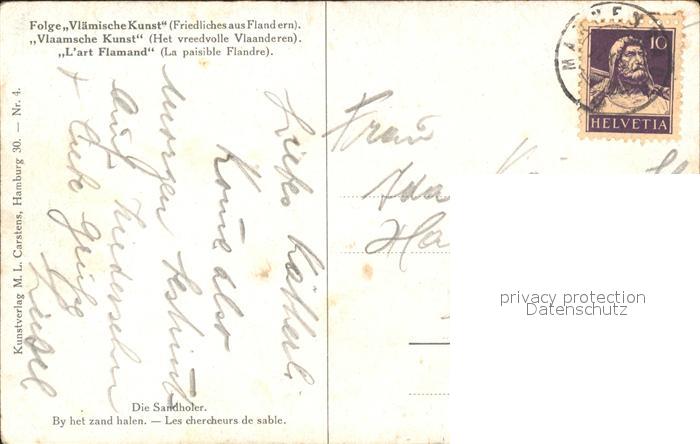 Folge „Vlämische Kunst“ (Friedliches aus Flandern).
„Vlaamsche Kunst“ (Het vreedvolle Vlaanderen).
„L'art Flamand“ (La paisible Flandre).
Kunstverlag M. L. Carstens, Hamburg 30. — Nr. 4.
Liebes
Kome also
Morgen bestimt
Auf Wiedersehn
+ Gute Grüße
Liesel
Die Sandholer.
By het zand halen. — Les chercheurs de sable.
10
HELVETIA
Frau
Ida
Ha
privacy protection
Datenschutz